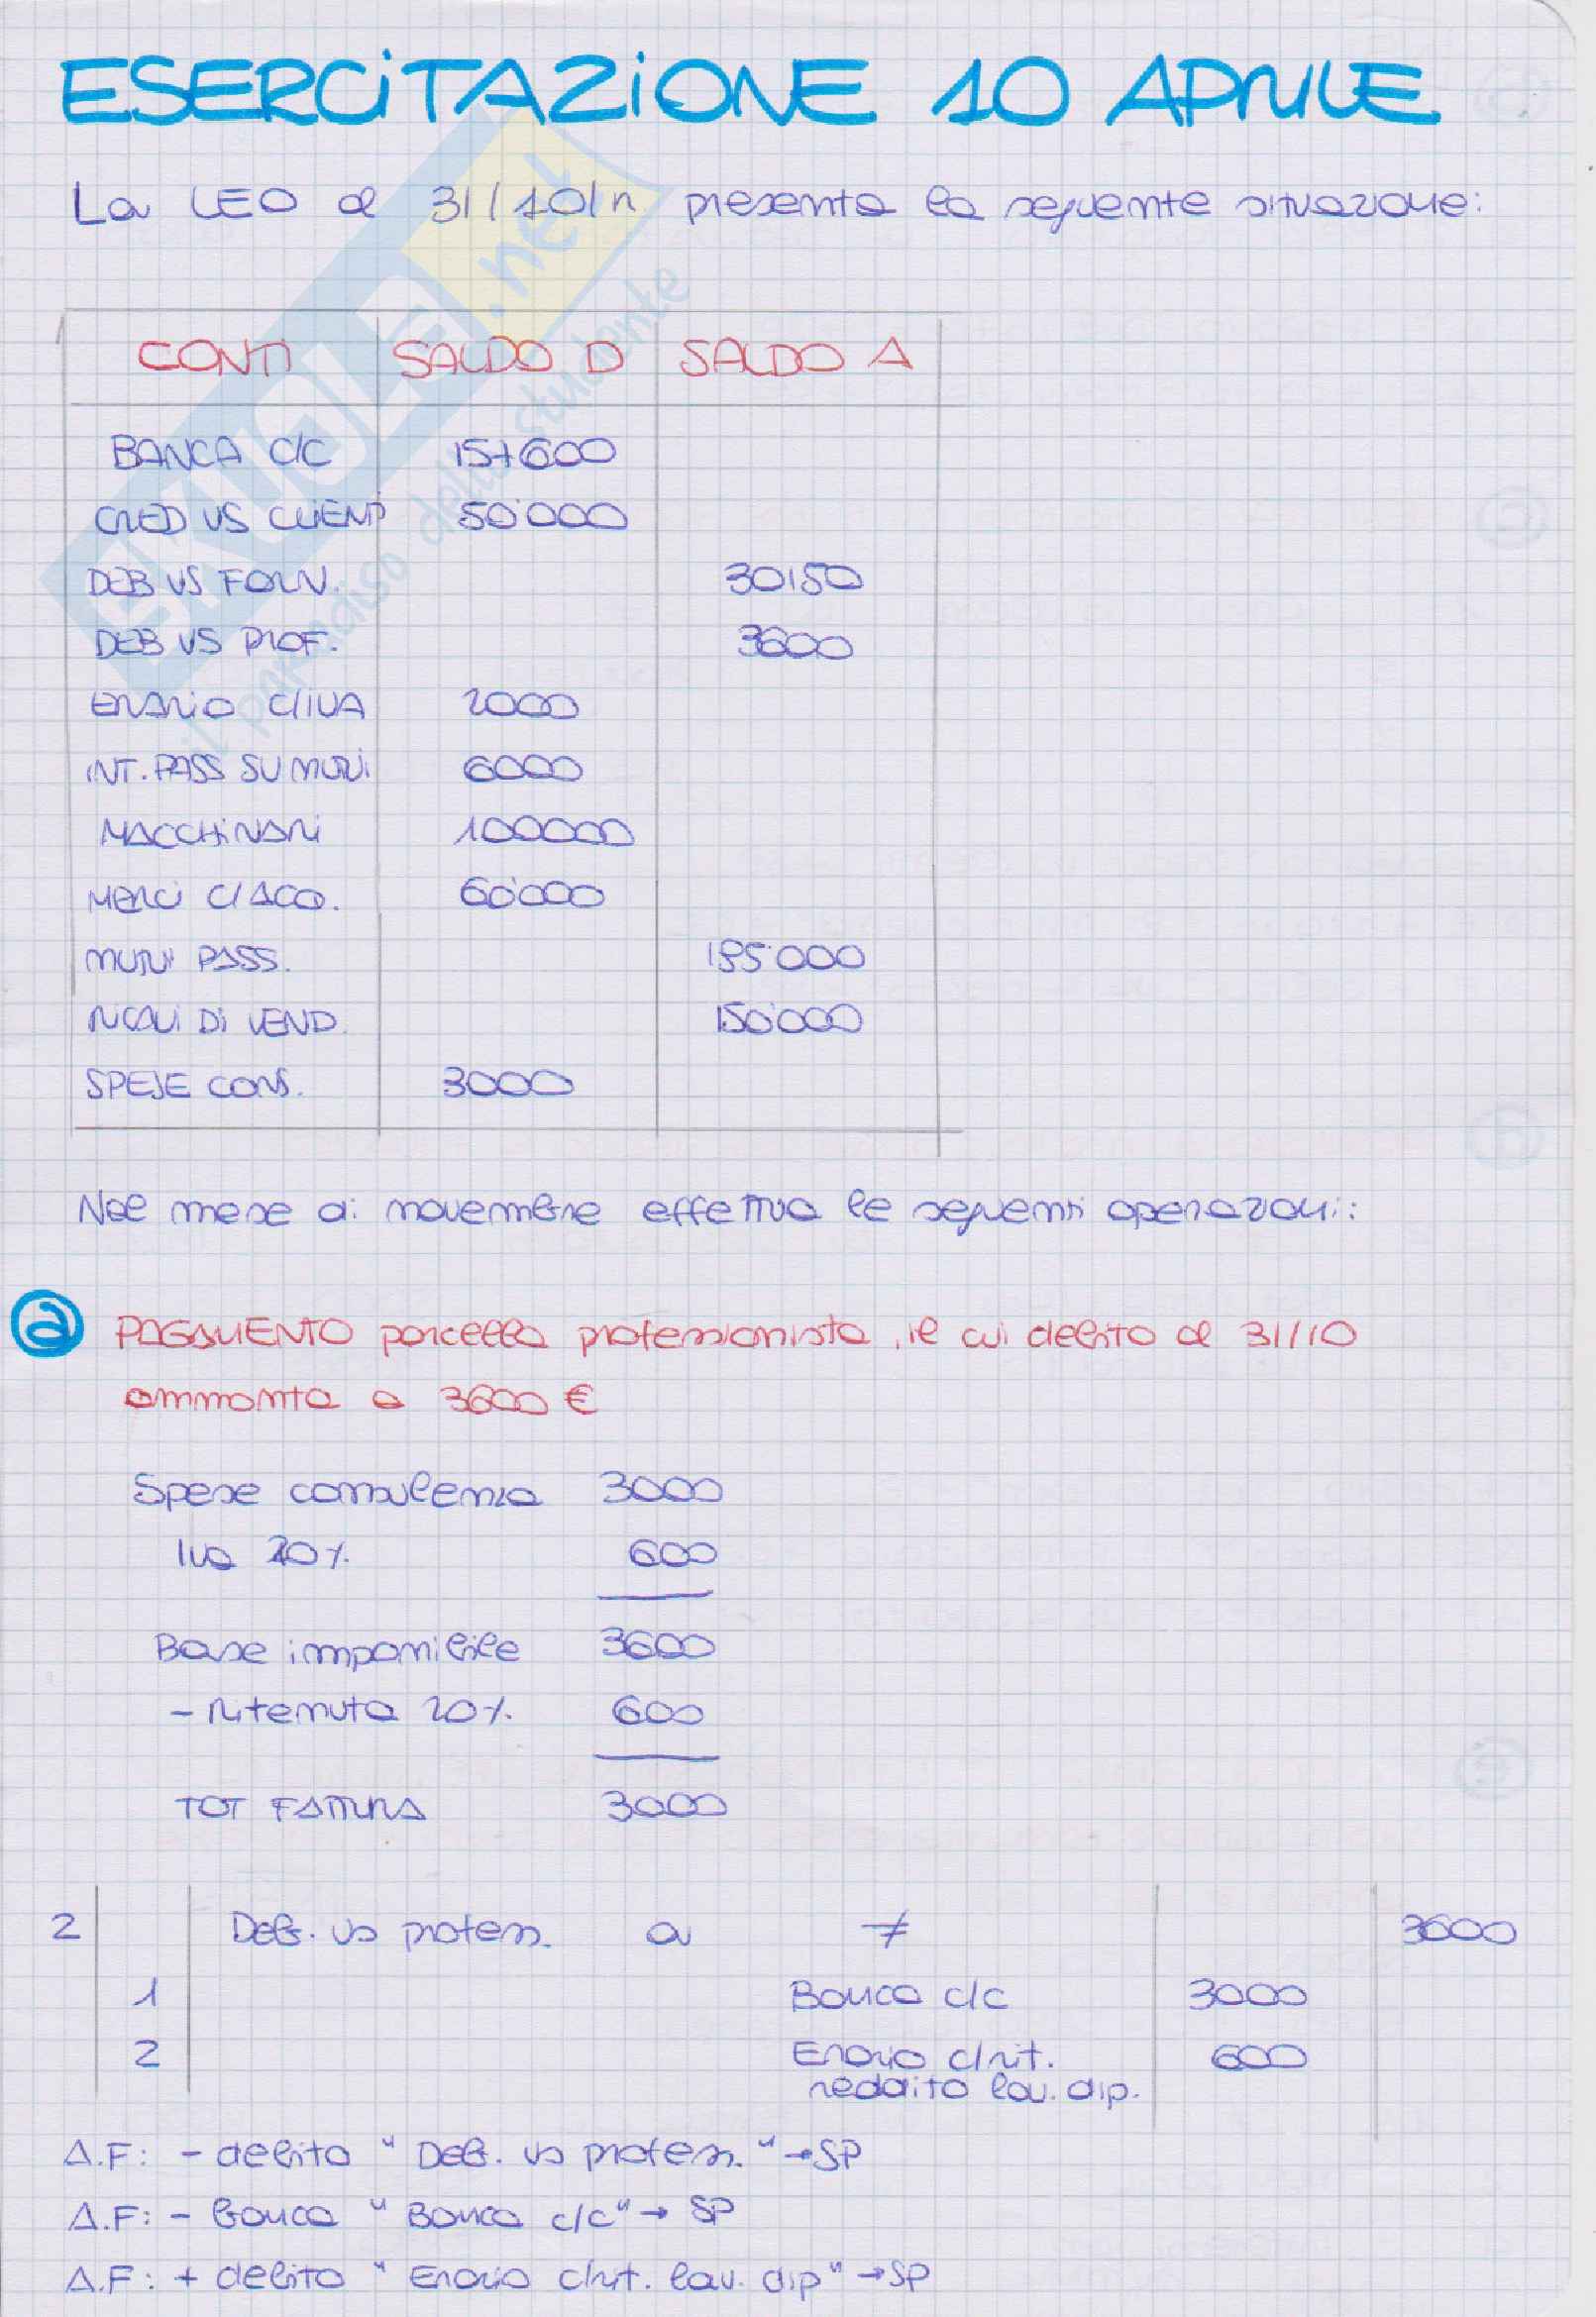 ESERCITAZIONE 10 APRILE
La LEO al 31/10/n presenta la seguente situazione:
CONTI SALDO D SALDO A
BANCA C/C 157600
CRED VS CLIENTI 50'000
DEB VS FORN. 30150
DEB VS PROF. 3600
ERARIO C/IVA 2000
INT. PASS SU MUTUI 6000
MACCHINARI 100000
MERCI C/ACQ. 60'000
MUTUI PASS. 195'000
RICAVI DI VEND. 150'000
SPESE CONS. 3000
Nel mese di novembre effettua le seguenti operazioni:
a PAGAMENTO parcella professionista, il cui debito al 31/10
ammonta a 3600 €
Spese consulenza 3000
Iva 20% 600
Base imponibile 3600
- Ritenuta 20% 600
TOT FATTURA 3000
2 Deb. vs profess. a ≠ 3600
1 Banca c/c 3000
2 Erario c/rit. 600
reddito lav. dip.
A.F: - debito "Deb. vs profess." → SP
A.F: - banca "Banca c/c" → SP
A.F: + debito "Erario c/rit. lav. dip" → SP
SKUOLA.net
il paradiso dello studente